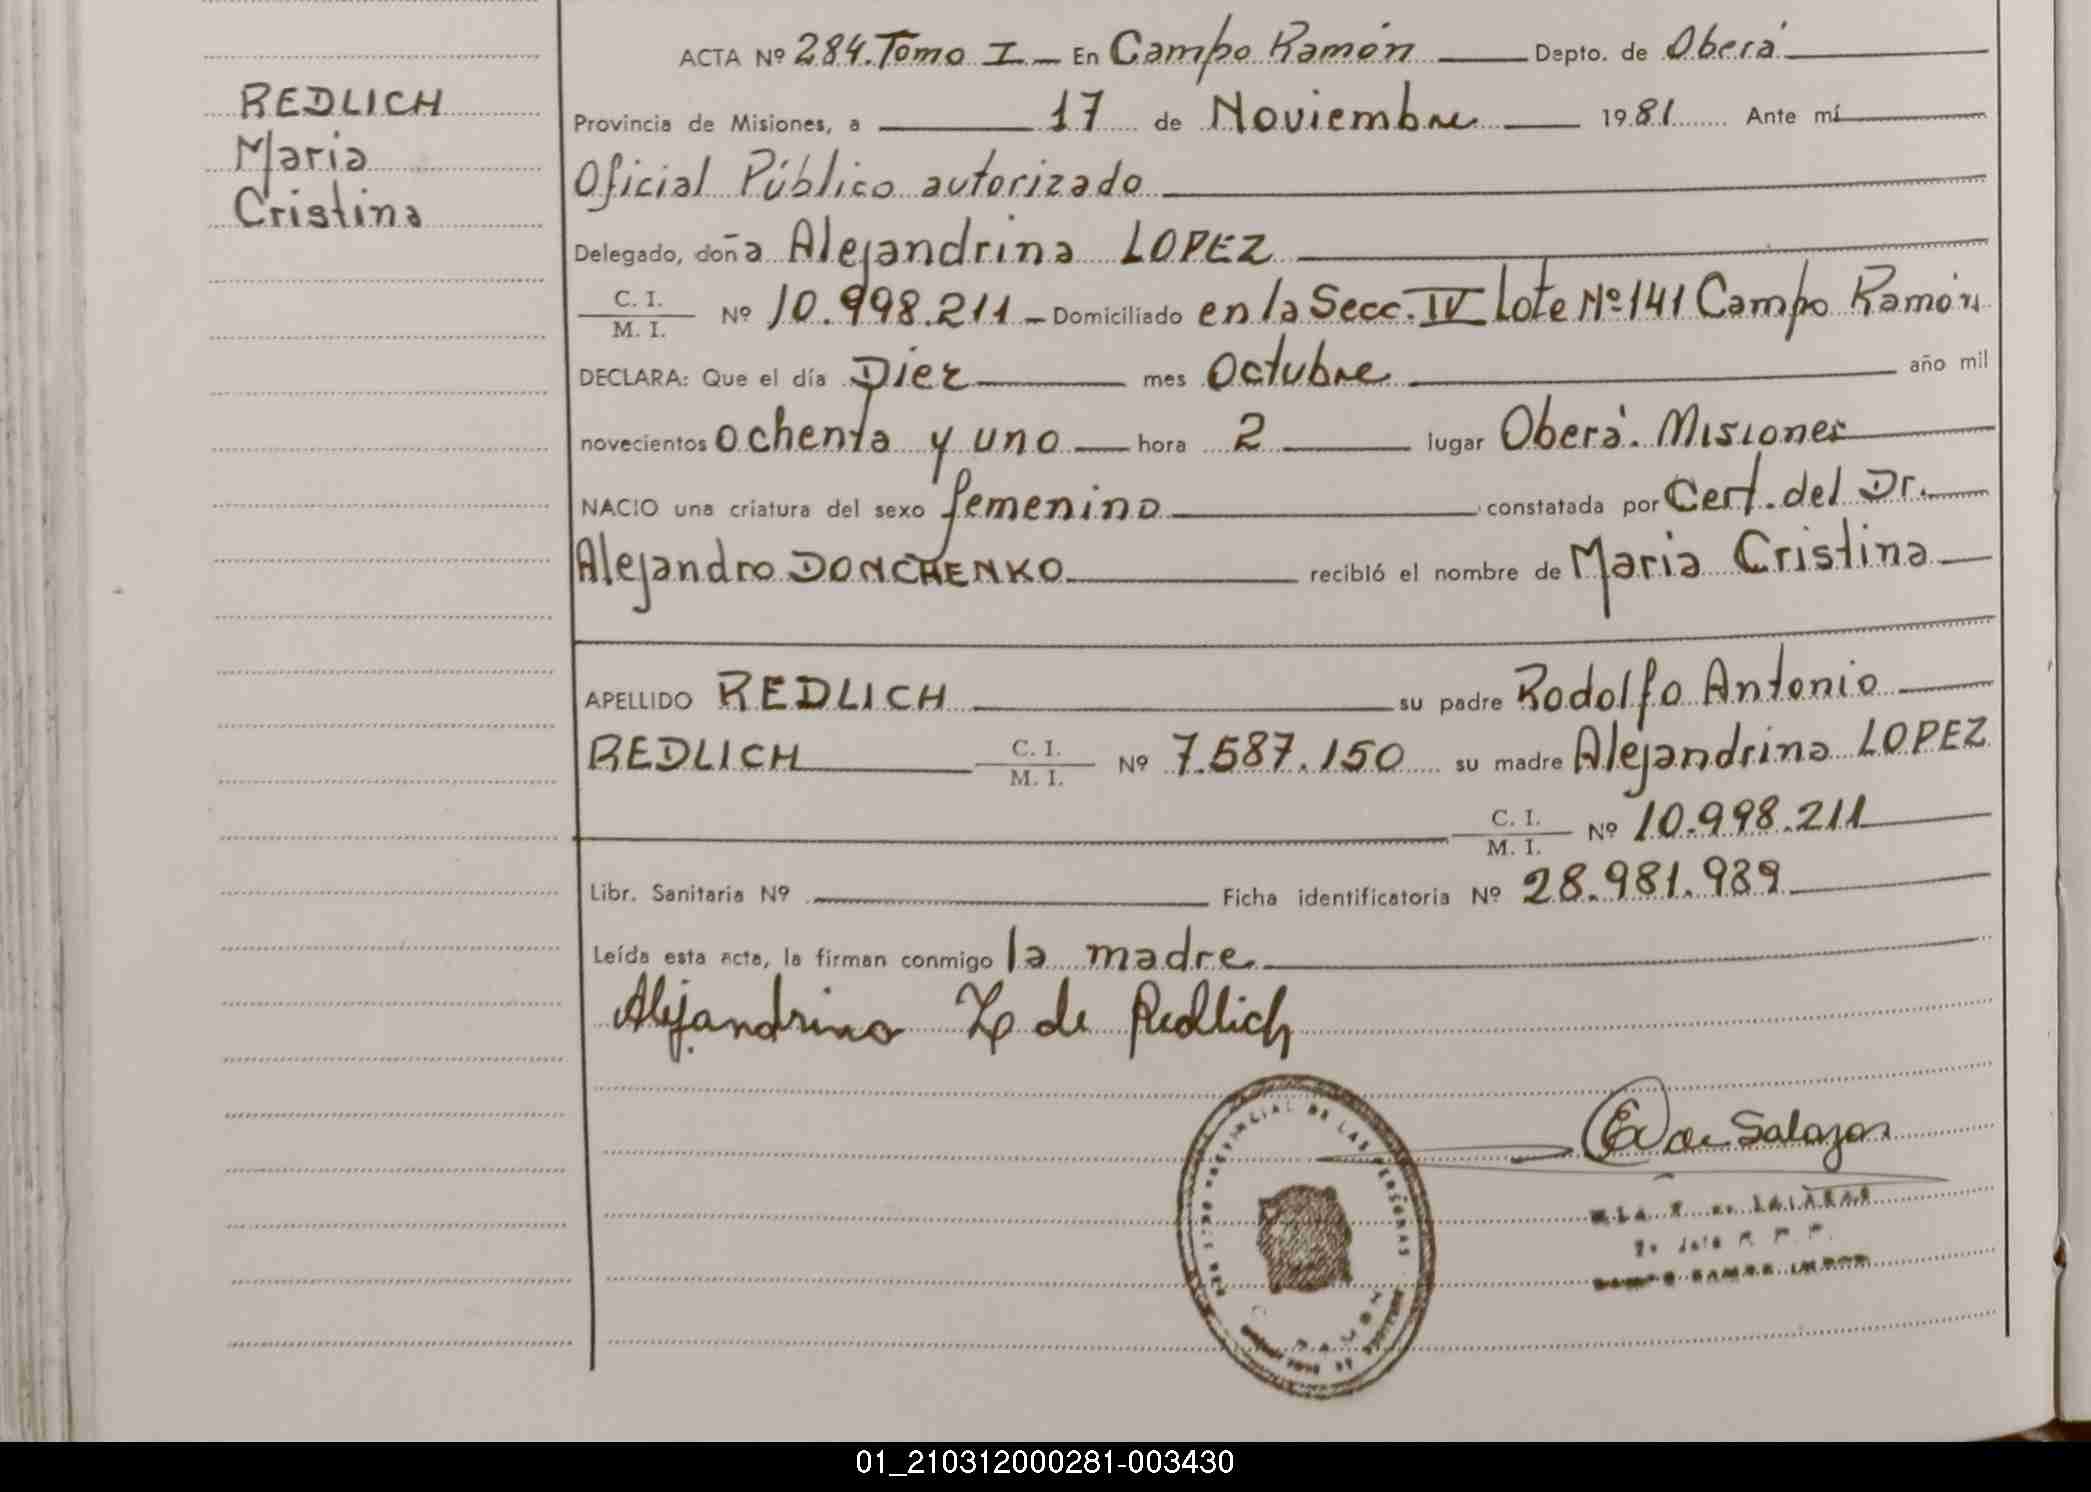 ACTA Nº 284. Tomo I En Campo Ramón Depto. de Oberá
REDLICH
Maria
Cristina
Provincia de Misiones, a 17 de Noviembre 1981 Ante mí
Oficial Público autorizado
Delegado, doña Alejandrina LOPEZ
C. I.
M. I. Nº 10.998.211 Domiciliado en la Secc. IV Lote Nº 141 Campo Ramón
DECLARA: Que el día Diez mes Octubre año mil
novecientos ochenta y uno hora 2 lugar Oberá. Misiones
NACIO una criatura del sexo femenino constatada por Cert. del Dr.
Alejandro DONCHENKO recibió el nombre de Maria Cristina
APELLIDO REDLICH su padre Rodolfo Antonio
REDLICH C. I.
M. I. Nº 7.587.150 su madre Alejandrina LOPEZ
C. I.
M. I. Nº 10.998.211
Libr. Sanitaria Nº Ficha identificatoria Nº 28.981.989
Leída esta acta, la firman conmigo la madre
Alejandrina L de Redlich
de Salazar
PROVINCIAL DE LAS PERSONAS
01_210312000281-003430